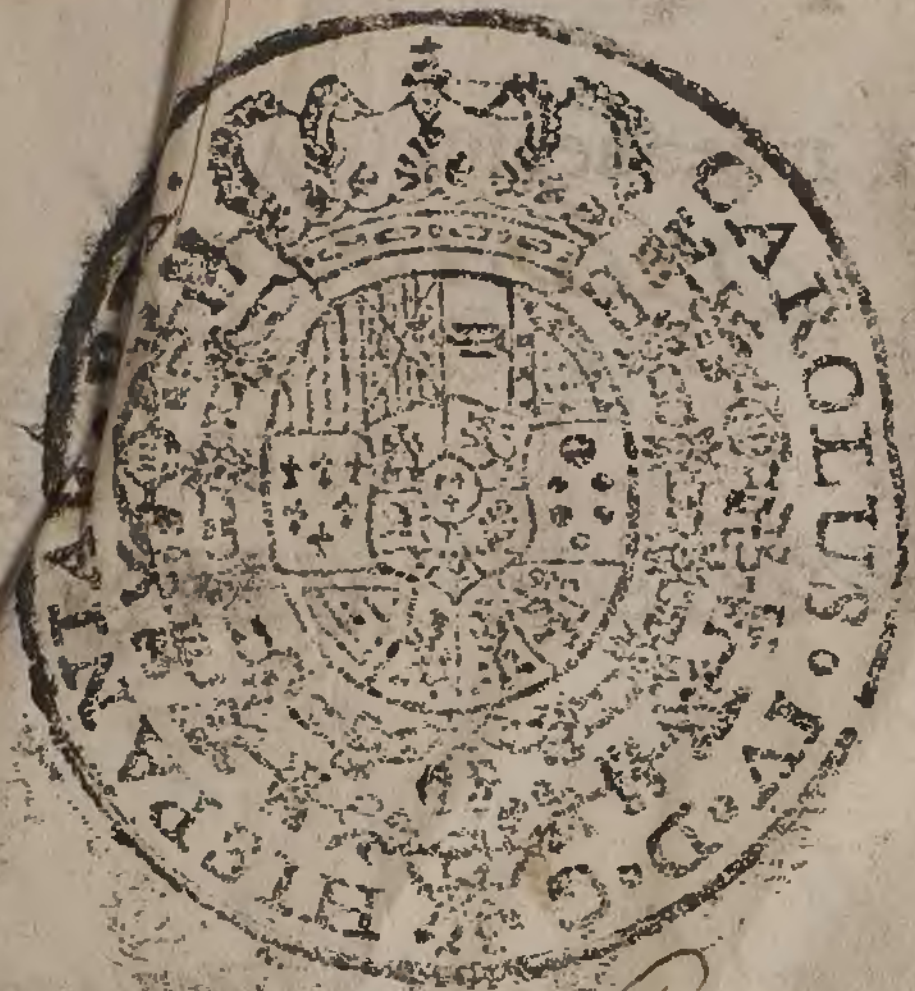 CAROLUS · IV · D · G · HISPANIA